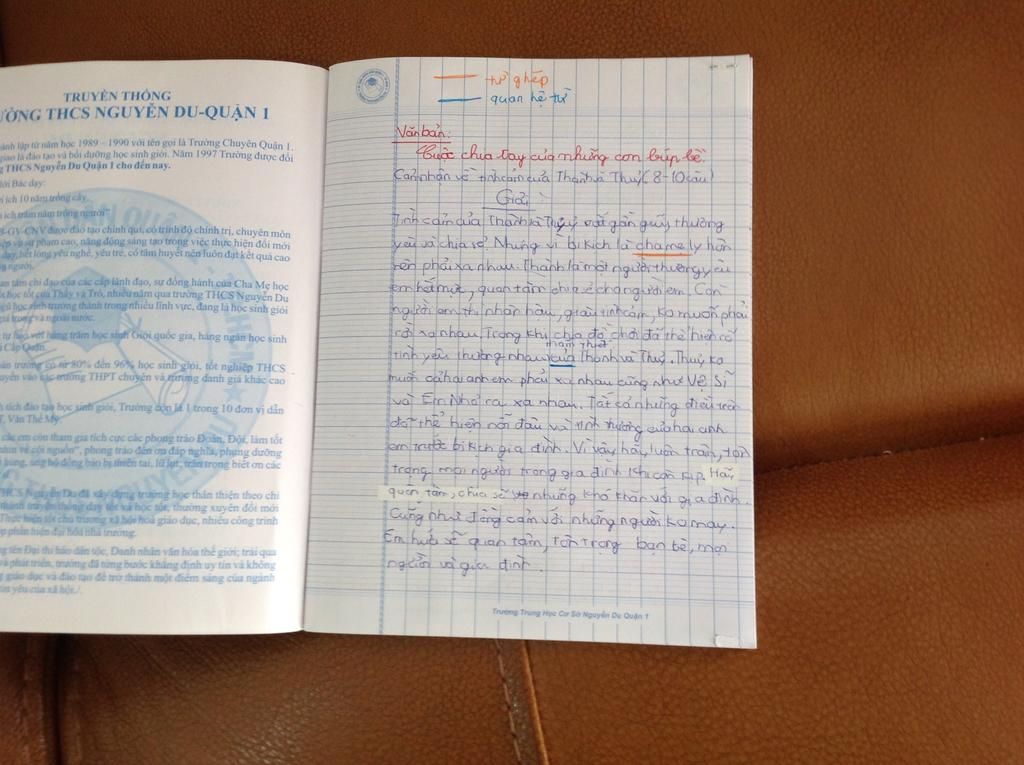 TRUYỀN THỐNG
ƯỜNG THCS NGUYỄN DU-QUẬN 1
ành lập từ năm học 1989 - 1990 với tên gọi là Trường Chuyên Quận 1.
giao là đào tạo và bồi dưỡng học sinh giỏi. Năm 1997 Trường được đổi
THCS Nguyễn Du Quận 1 cho đến nay.
lời Bác dạy:
ợi ích 10 năm trồng cây.
i ích trăm năm trồng người"
B-GV-CNV được đào tạo chính qui, có trình độ chính trị, chuyên môn
sư phạm cao, năng động sáng tạo trong việc thực hiện đổi mới
dạy, hết lòng yêu nghề, yêu trẻ, có tâm huyết nên luôn đạt kết quả cao
người.
tâm chỉ đạo của các cấp lãnh đạo, sự đồng hành của Cha Mẹ học
học tốt của Thầy và Trò, nhiều năm qua trường THCS Nguyễn Du
học sinh trưởng thành trong nhiều lĩnh vực, đang là học sinh giỏi
trong và ngoài nước.
tự hào với hàng trăm học sinh Giỏi quốc gia, hàng ngàn học sinh
Cấp Quận.
trường có từ 80% đến 96% học sinh giỏi, tốt nghiệp THCS
vào các trường THPT chuyên và trường danh giá khác cao
tích đào tạo học sinh giỏi, Trường còn là 1 trong 10 đơn vị dẫn
T, Văn Thể Mỹ.
các em còn tham gia tích cực các phong trào Đoàn, Đội, làm tốt
về cội nguồn", phong trào đền ơn đáp nghĩa, phụng dưỡng
hùng, ủng hộ đồng bào bị thiên tai, lũ lụt, trân trọng biết ơn các
THCS Nguyễn Du đã xây dựng trường học thân thiện theo chỉ
thành truyền thống dạy tốt và học tốt, thường xuyên đổi mới
Thực hiện tốt chủ trương xã hội hóa giáo dục, nhiều công trình
phân hiệu đại hóa nhà trường.
tên Đại thi hào dân tộc, Danh nhân văn hóa thế giới; trải qua
và phát triển, trường đã từng bước khẳng định uy tín và không
giáo dục và đào tạo để trở thành một điểm sáng của ngành
yêu của xã hội./.
từ ghép
quan hệ từ
Văn bản:
Cuộc chia tay của những con búp bê.
Cảm nhận về tình cảm của Thành và Thuỷ (8-10 câu)
Giải
Tình cảm của Thành và Thủy rất gần gũi, thương
yêu và chia sẻ. Nhưng vì bi kịch là cha mẹ ly hôn
nên phải xa nhau. Thành là một người thương yêu
em hết mực, quan tâm chia sẻ cho người em. Còn
người em thì nhân hậu, giàu tình cảm, ko muốn phải
rời xa nhau. Trong khi chia đồ chơi đã thể hiện rõ
thắm thiết
tình yêu thương nhau của Thành và Thuỷ. Thuỷ ko
muốn cả hai anh em phải xa nhau cũng như Vệ Sĩ
và Em Nhỏ rời xa nhau. Tất cả những điều trên
đã thể hiện nỗi đau và tình thương của hai anh
em trước bi kịch gia đình. Vì vậy hãy luôn trân, tôn
trọng mọi người trong gia đình khi còn kịp. Hãy
quan tâm, chia sẻ những khó khăn với gia đình.
Cũng như đồng cảm với những người ko may.
Em hứa sẽ quan tâm, tôn trọng bạn bè, mọi
người và gia đình.
Trường Trung Học Cơ Sở Nguyễn Du Quận 1